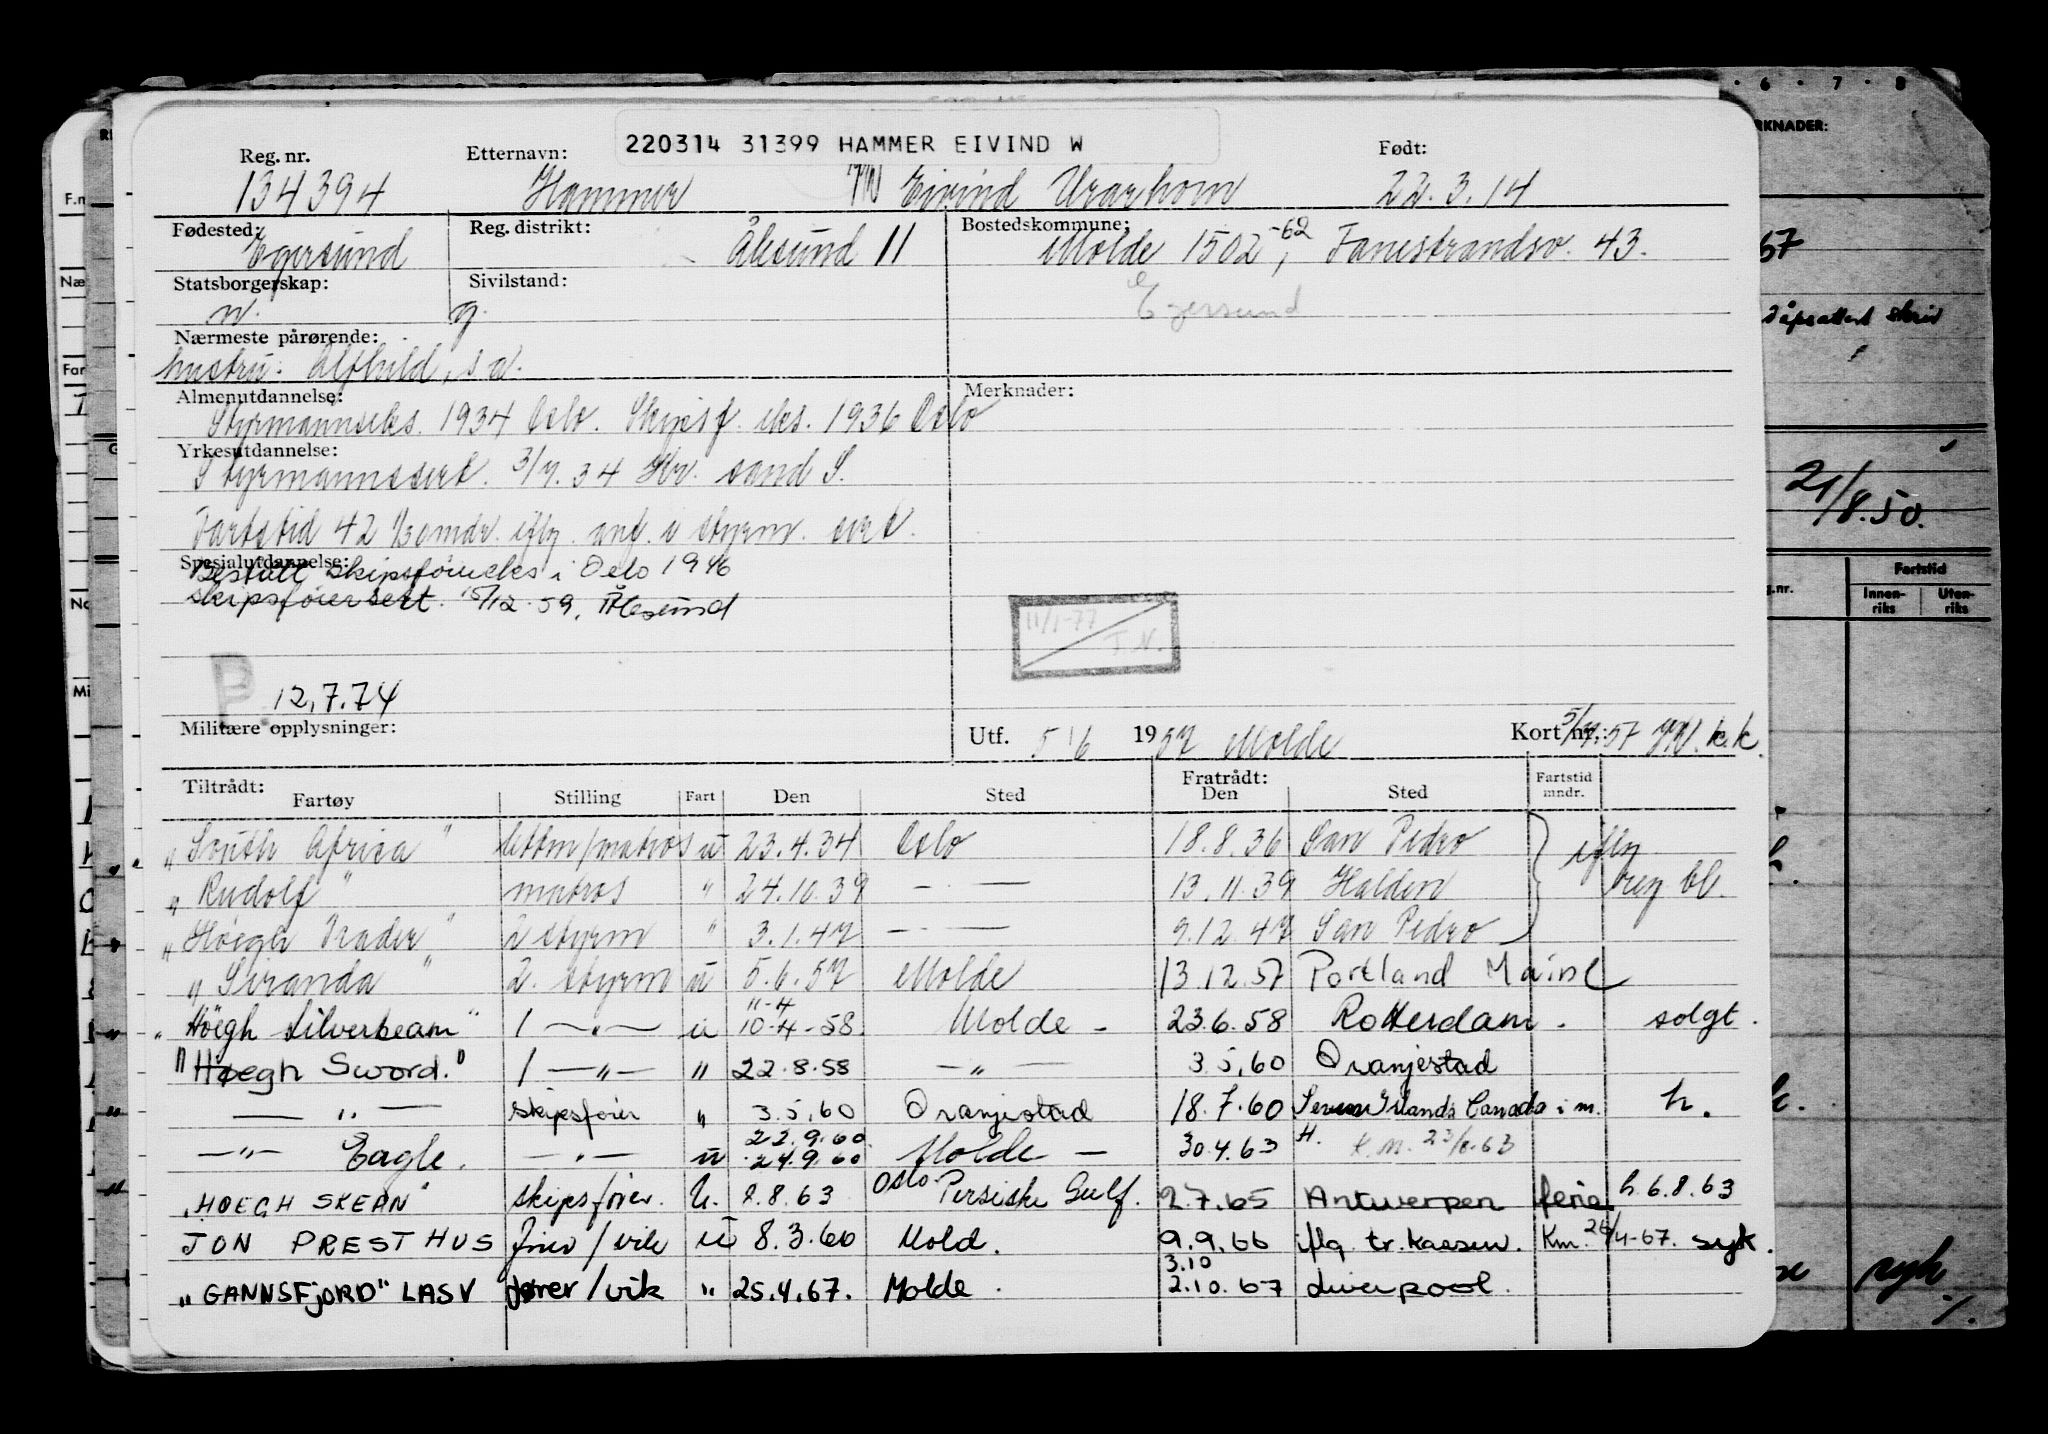 220314 31399 HAMMER EIVIND W
Reg. nr. Etternavn: Født:
134394 Hammer Eivind 22.3.14
Fødested: Reg. distrikt: Bostedskommune:
Egersund Ålesund 11 Molde 1502 -62, Fanestrandsv. 43.
Statsborgerskap: Sivilstand:
n. g. Egersund
Nærmeste pårørende:
hustru: Alfhild, s a.
Almenutdannelse: Merknader:
Styrmannseks. 1934 Oslo. Skipsf. eks. 1936 Oslo
Yrkesutdannelse:
Styrmannssert. 3/7.34 Kr. sand S.
Fartstid 42 mndr. iflg. anf. i styrm. sert.
Spesialutdannelse:
Bestått skipsførereks i Oslo 1946
skipsførersert. 15/12.59, Ålesund
11/1-77
T.N.
P. 12.7.74
Militære opplysninger:
Utf. 5/6 1957 Molde Kort nr.: 5/7.57 k.k.
Tiltrådt: Fratrådt:
Fartøy Stilling Fart Den Sted Den Sted Fartstid mndr.
"South Africa" lettm/matros u 23.4.34 Oslo 18.8.36 San Pedro iflg
"Rudolf" matros " 24.10.39 — " — 13.11.39 Halden reg. bl.
"Høegh Trader" 2 styrm " 3.1.47 — " — 9.12.47 San Pedro
"Siranda" 2. styrm u 5.6.57 Molde 13.12.57 Portland Maine
11-4
"Høegh Silverbeam" 1 — " — u 10-4-58. Molde - 23.6.58 Rotterdam. solgt.
"Høegh Sword." 1 — " — " 22.8.58 — " — 3.5.60 Oranjestad
— " — skipsfører " 3.5.60 Oranjestad 18.7.60 Seven Islands Canada i m. h.
22.9.60
— " — Eagle. — " — u 24.9.60 Molde — 30.4.63 H. K.M. 23/8.63
"HOEGH SKEAN" skipsfører. U. 2.8.63 Oslo Persiske Gulf. 2.7.65 Antwerpen ferie h. 6.8.63
JON PRESTHUS fører/vik u 8.3.66 Mold. 9.9.66 iflg. tr. kassen. Km. 26/4-67. syk.
3.10
"GANNSFJORD" LASV fører/vik " 25.4.67. Molde. 2.10.67 Liverpool.
6 7 8
RKNADER:
57
21/8.50.
Fartstid
Innen-riks Uten-riks
syk